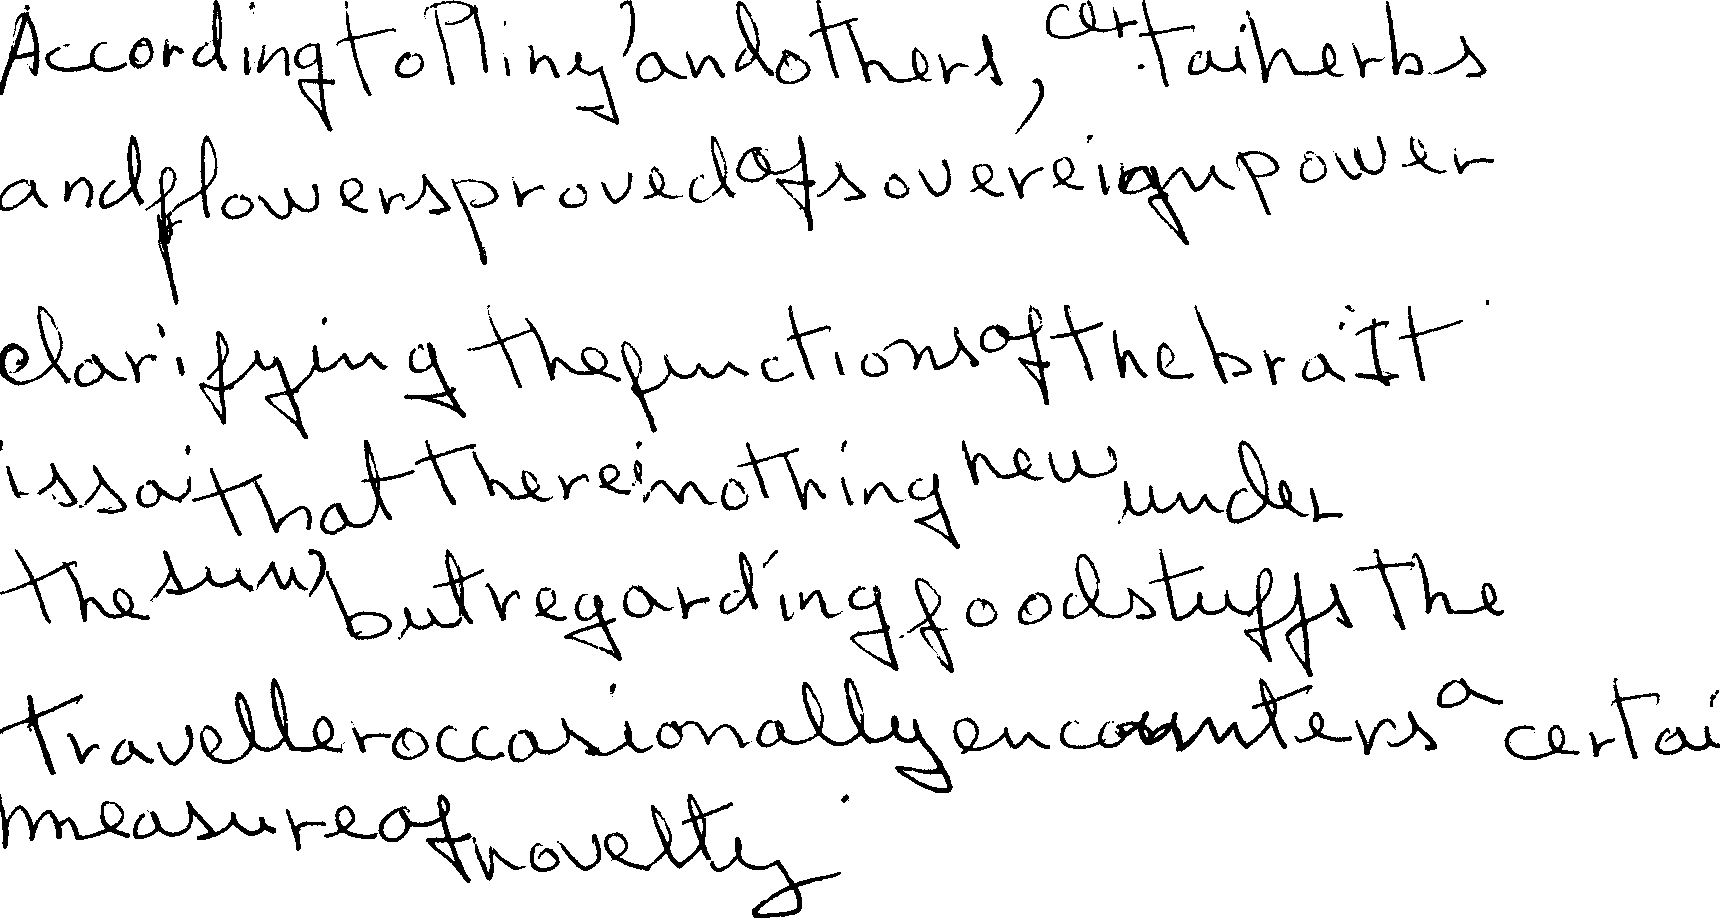 According to Pliny and others, certai herbs
and flowers proved of sovereign power
clarifying the functions of the brai. It
is sai that there i nothing new under
the sun, but regarding foodstuffs the
traveller occasionally encounters a certai
measure of novelty.